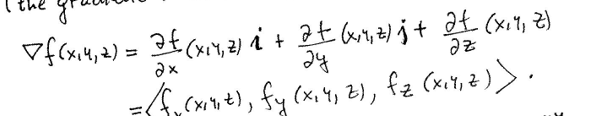 (the
∇f(x,y,z) = ∂f/∂x (x,y,z) i + ∂f/∂y (x,y,z) j + ∂f/∂z (x,y,z)
= ⟨f_x(x,y,z), f_y(x,y,z), f_z(x,y,z)⟩.